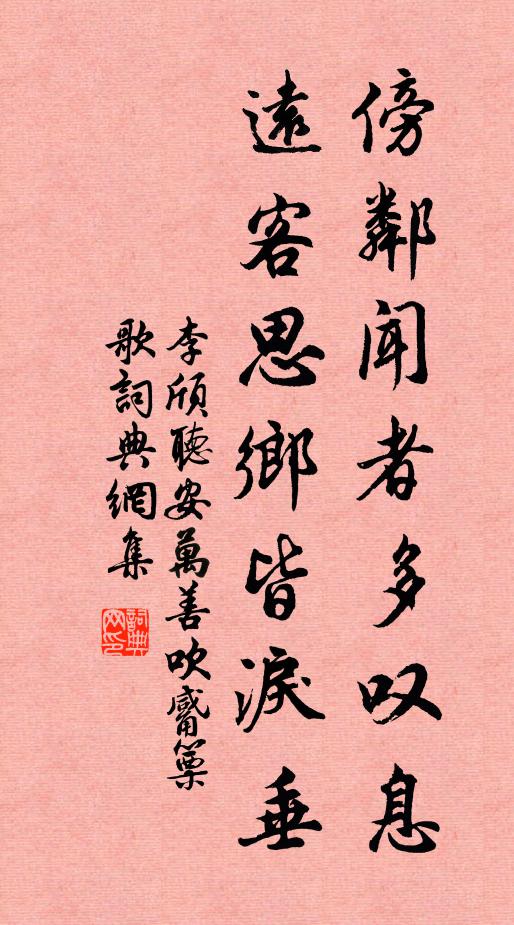 傍鄰聞者多叹息
遠客思鄉皆淚垂
李頎聽安萬善吹觱篥
歌詞典網集
詞典网印